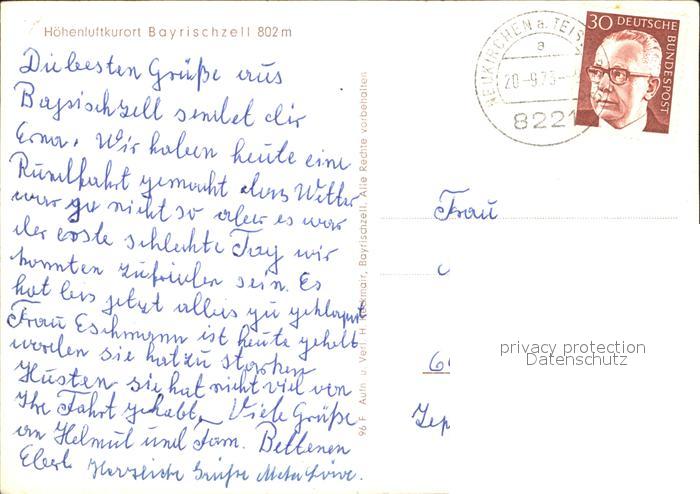 Höhenluftkurort Bayrischzell 802m
Die besten Grüße aus
Bayrischzell sendet dir
Erna. Wir haben heute eine
Rundfahrt gemacht das Wetter
war ja nicht so aber es war
der erste schlechte Tag wir
konnten zufrieden sein. Es
hat bis jetzt alles gu geklappt
Frau Eschmann ist heute geholt
worden sie hat zu starken
Husten sie hat nicht viel von
Ihr Fahrt gehabt. Viele Grüße
an Helmut und Fam.
Herzliche Grüße Meta
96 F Aufn. u. Verl. H. Bayrischzell, Alle Rechte vorbehalten
NEUKIRCHEN a. TEIS
a
20-9.73-
8221
30 DEUTSCHE
BUNDESPOST
Frau
privacy protection
Datenschutz